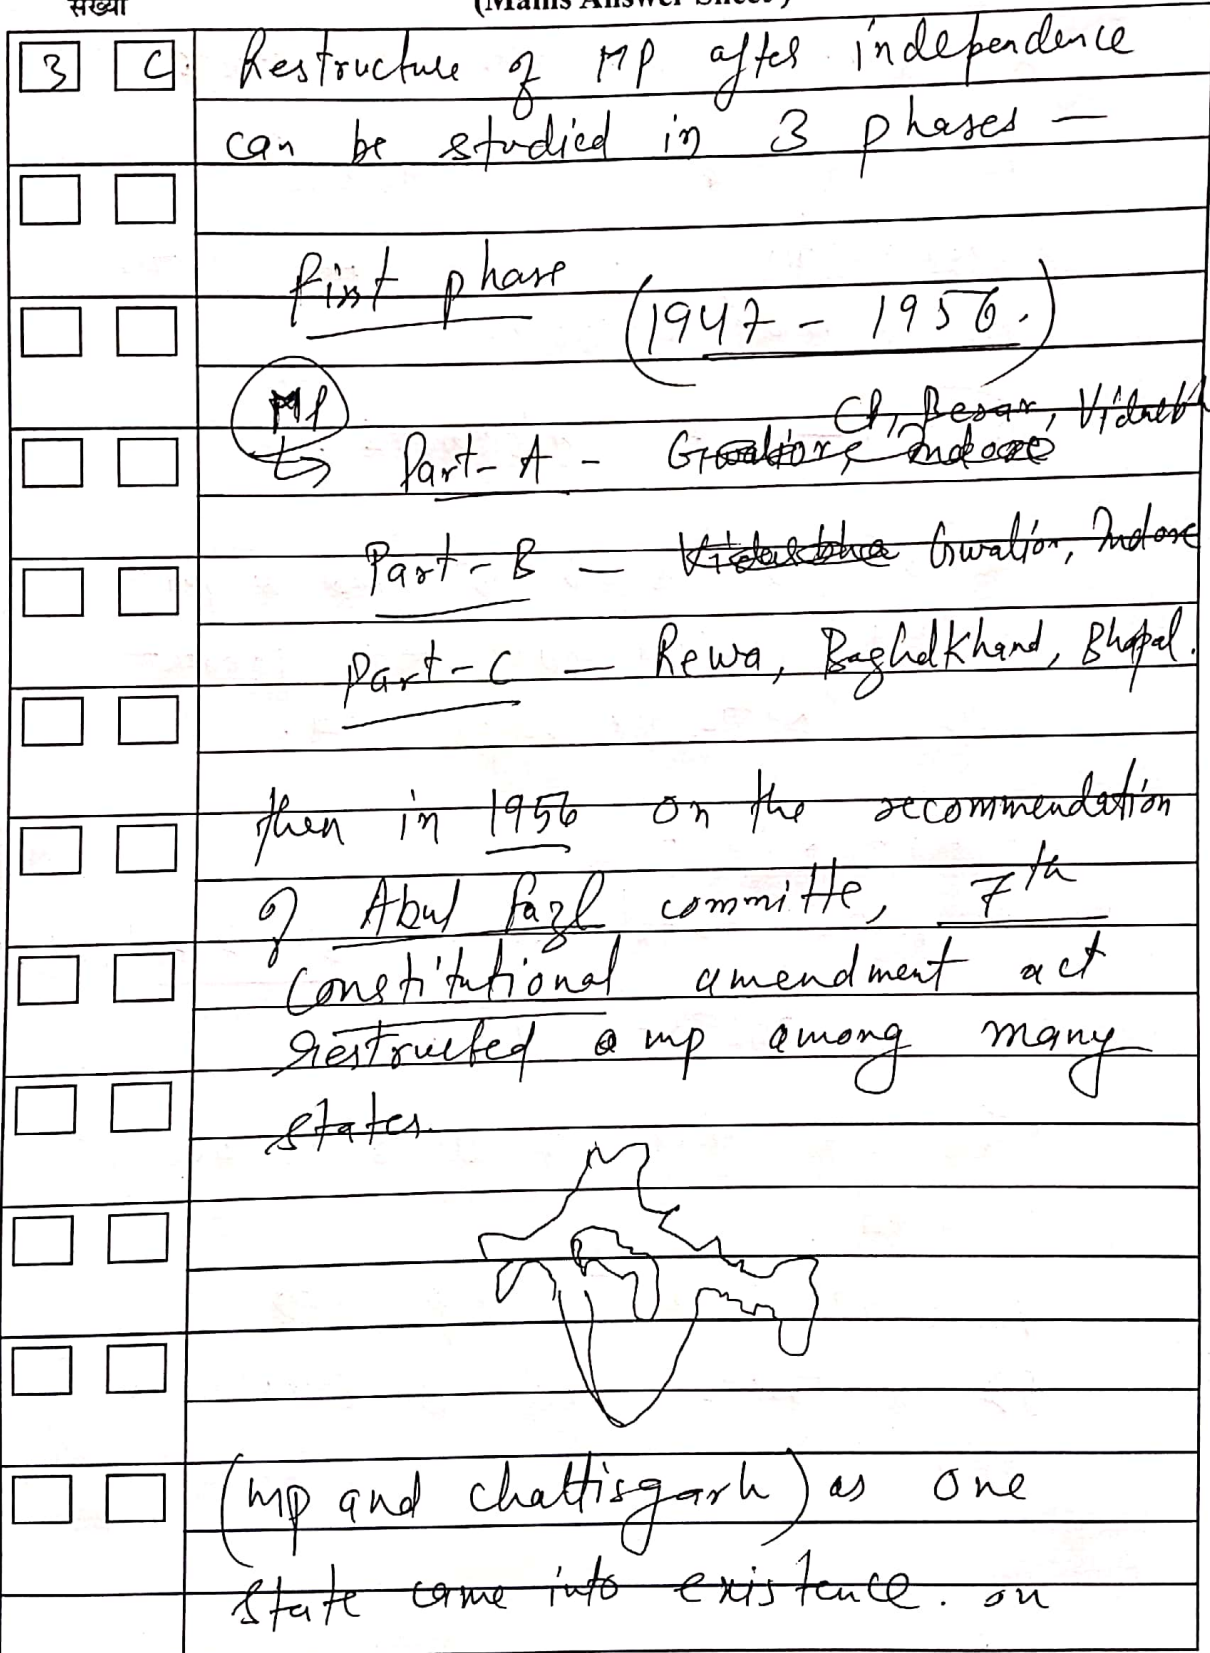 संख्या (Mains Answer Sheet)
3 C Restructure of MP after independence
can be studied in 3 phases —
first phase
(1947 - 1956.)
MP
CP, Berar, Vidarbh
Part-A -
Part-B — Gwalior, Indore
Part-C — Rewa, Baghelkhand, Bhopal.
then in 1956 on the recommendation
of Abul fazl committe, 7th
constitutional amendment act
restructed mp among many
states.
(mp and chattisgarh) as one
state came into existence. on